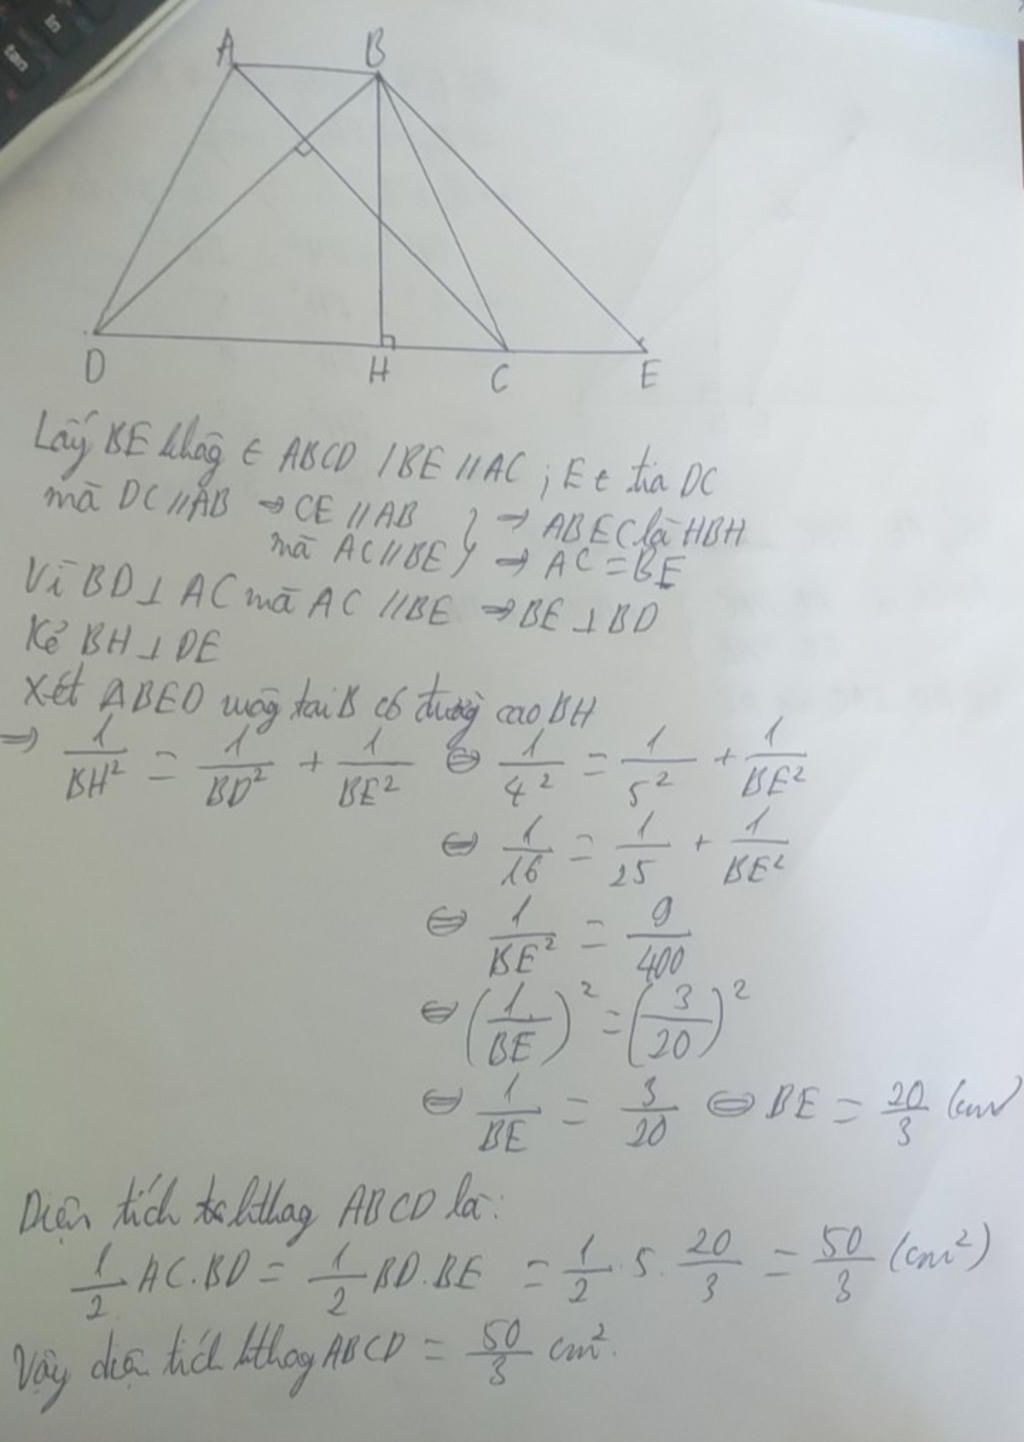 A B
D H C E
Lấy BE không ∈ ABCD / BE // AC ; E ∈ tia DC
mà DC // AB → CE // AB } → ABEC là HBH
mà AC // BE } → AC = BE
Vì BD ⊥ AC mà AC // BE → BE ⊥ BD
Kẻ BH ⊥ DE
Xét ΔBED vuông tại B có đường cao BH
⇒ 1/BH² = 1/BD² + 1/BE² ⇔ 1/4² = 1/5² + 1/BE²
⇔ 1/16 = 1/25 + 1/BE²
⇔ 1/BE² = 9/400
⇔ (1/BE)² = (3/20)²
⇔ 1/BE = 3/20 ⇔ BE = 20/3 (cm)
Diện tích hthag ABCD là:
1/2 AC.BD = 1/2 BD.BE = 1/2 . 5. 20/3 = 50/3 (cm²)
Vậy diện tích hthag ABCD = 50/3 cm².